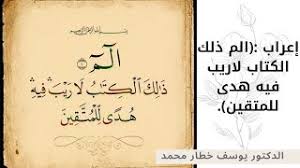 بسم الله الرحمن الرحيم
الٓمٓ
ذَٰلِكَ الْكِتَٰبُ لَا رَيْبَ فِيهِ
هُدًى لِّلْمُتَّقِينَ
إعراب :(الم ذلك
الكتاب لاريب
فيه هدى
للمتقين).
الدكتور يوسف خطار محمد